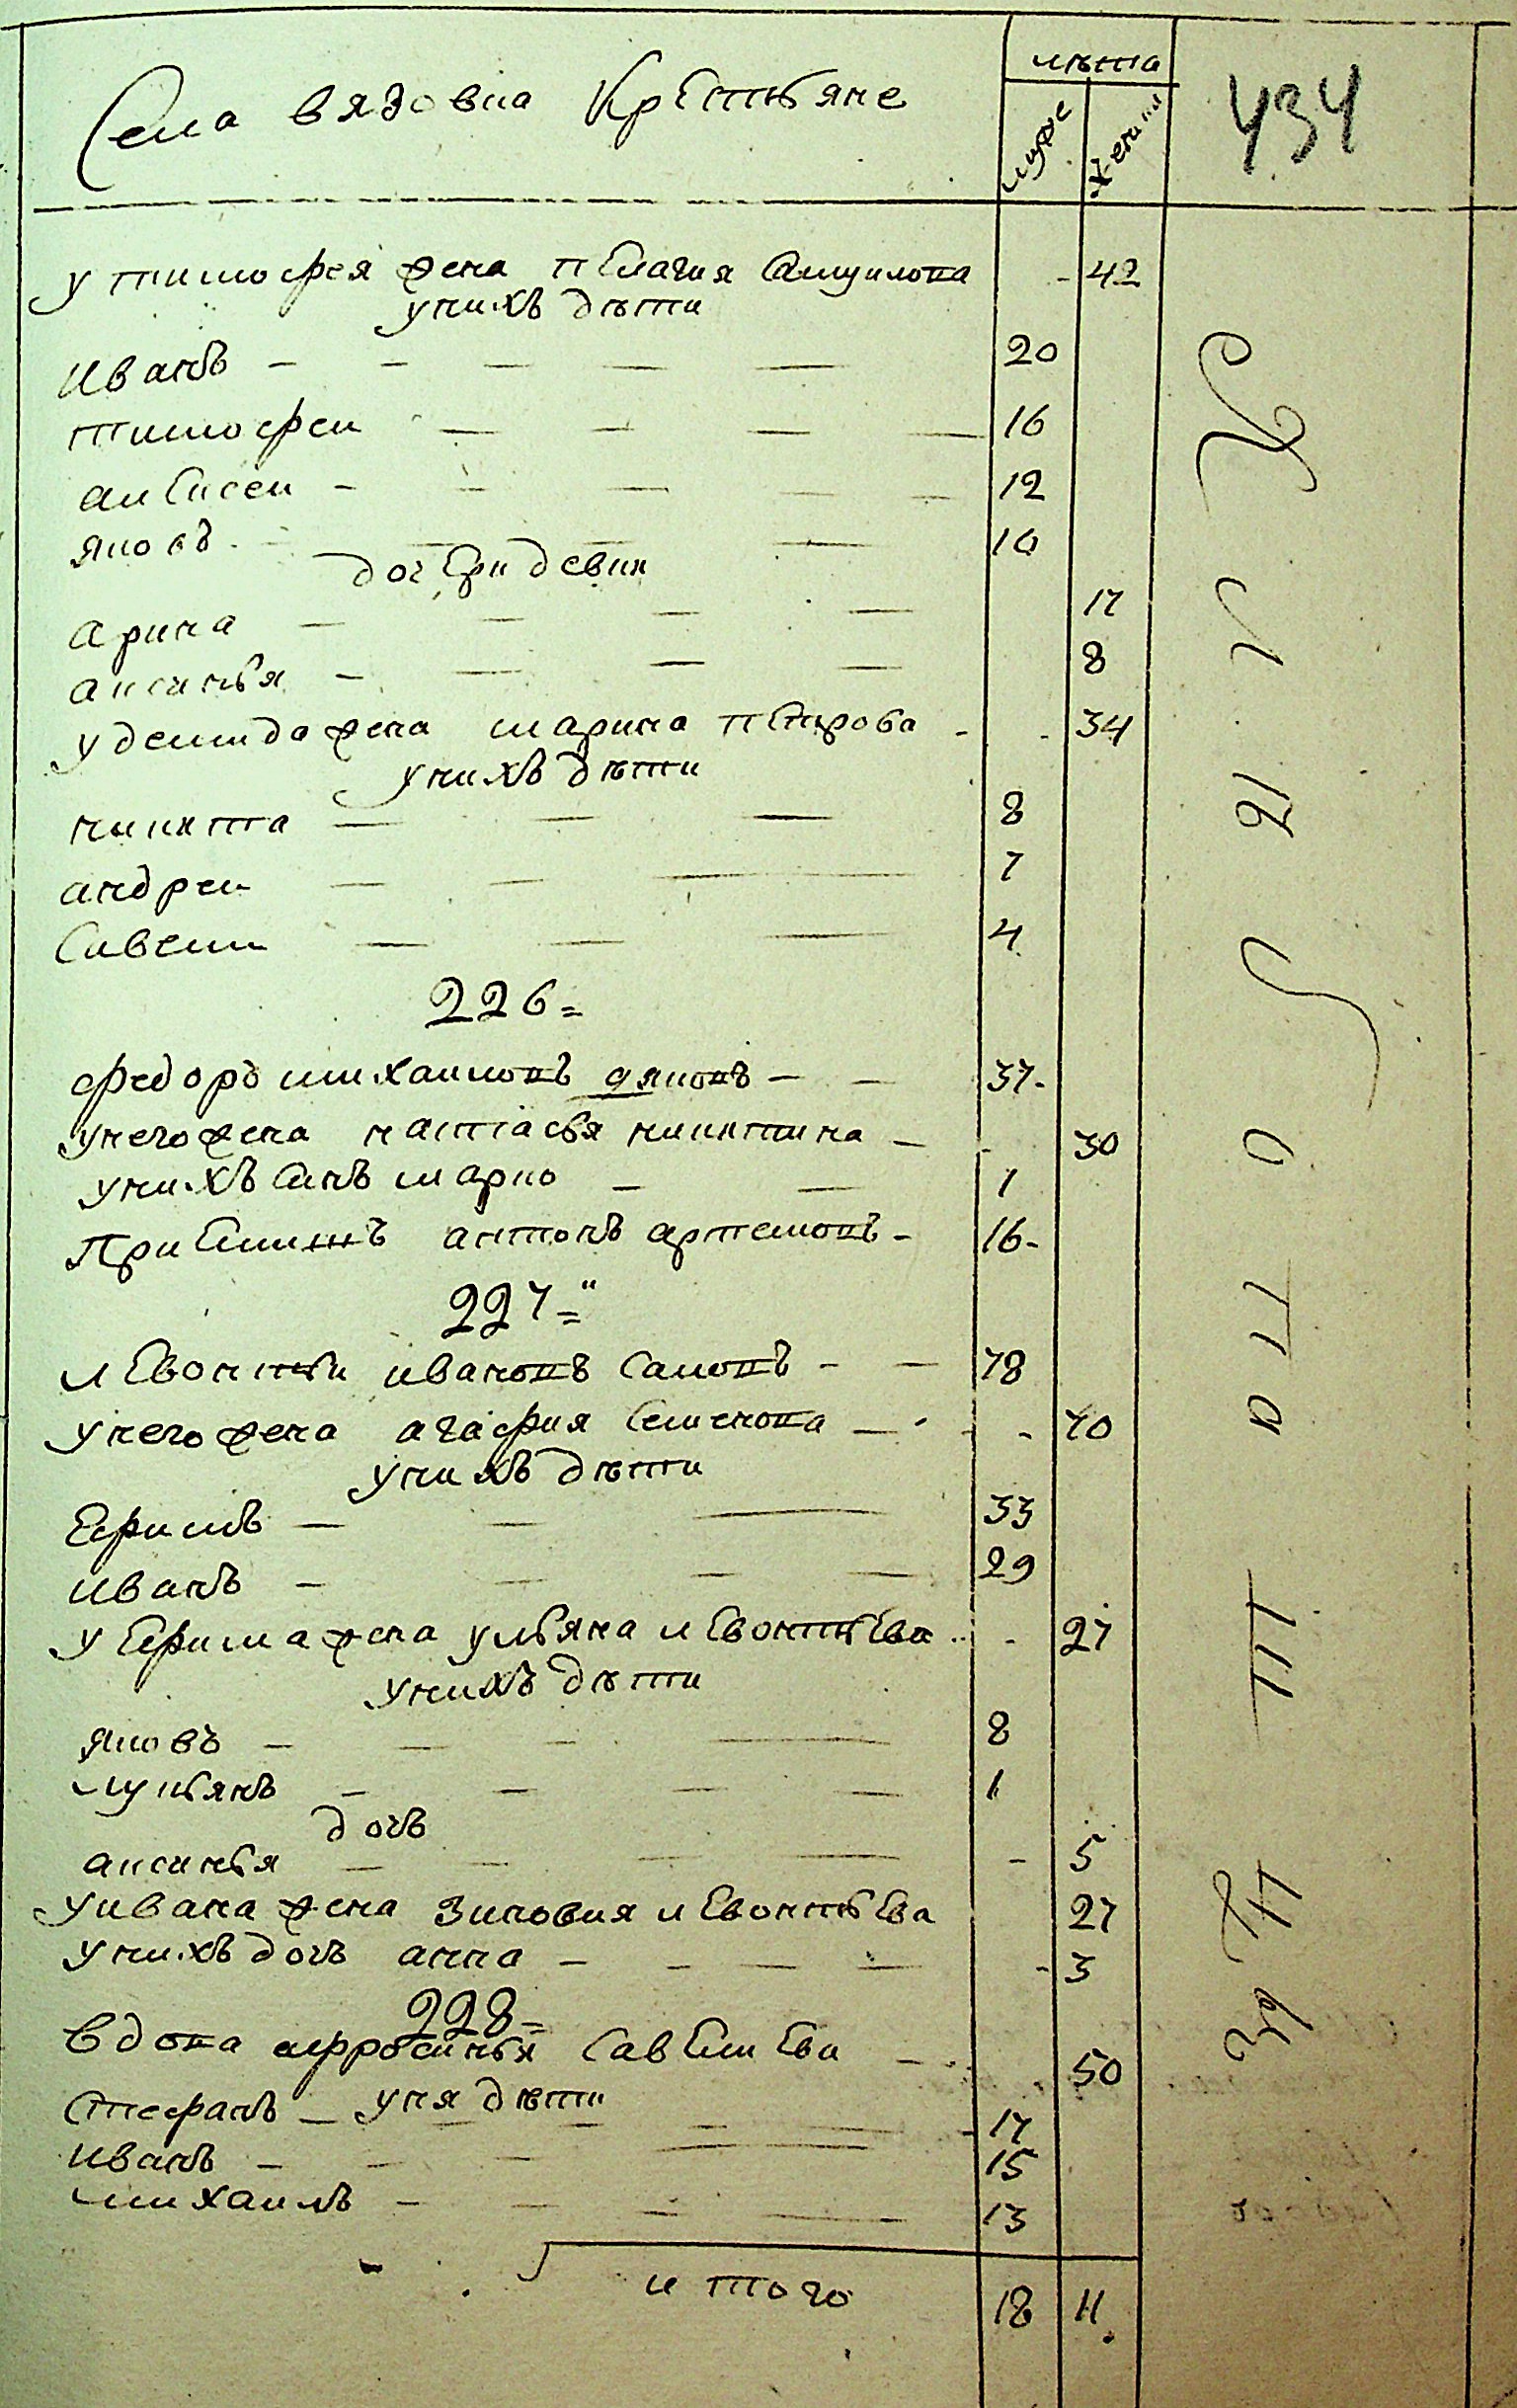 Села вядовка крестьяне
лѣта
муже
женш
434
у тимофея жена пелагия самуилова - 42
у них дѣти
иванъ - - - - - 20
тимофеи - - - - 16
алексеи - - - - - 12
яковъ - - - - 10
дочери девки
арина - - - - 17
аксинья - - - - 8
у демида жена марина петрова - - 34
у нихъ дѣти
никита - - - 8
андреи - - - 7
савели - - - 4
226=
федоръ михаиловъ дяковъ - - 37-
у него жена настасья никитина - 30
у нихъ сынъ марко - - 1
приемышъ антонъ артемовъ - 16-
227="
левонтьи ивановъ саловъ - - 78
у него жена агафия семенова - - 70
у нихъ дѣти
ефимъ - - - 33
иванъ - - - - 29
у ефима жена ульяна левонтьева - - 27
у нихъ дѣти
яковъ - - - - 8
лукьянъ - - - - 1
дочь
аксинья - - - - - 5
у ивана жена зиновия левонтьева 27
у нихъ дочь анна - - - - - 3
228=
вдова афросинья савельева - 50
у ня дѣти
стефанъ - - - - 17
иванъ - - - - 15
михаилъ - - - - 13
итого 18 11